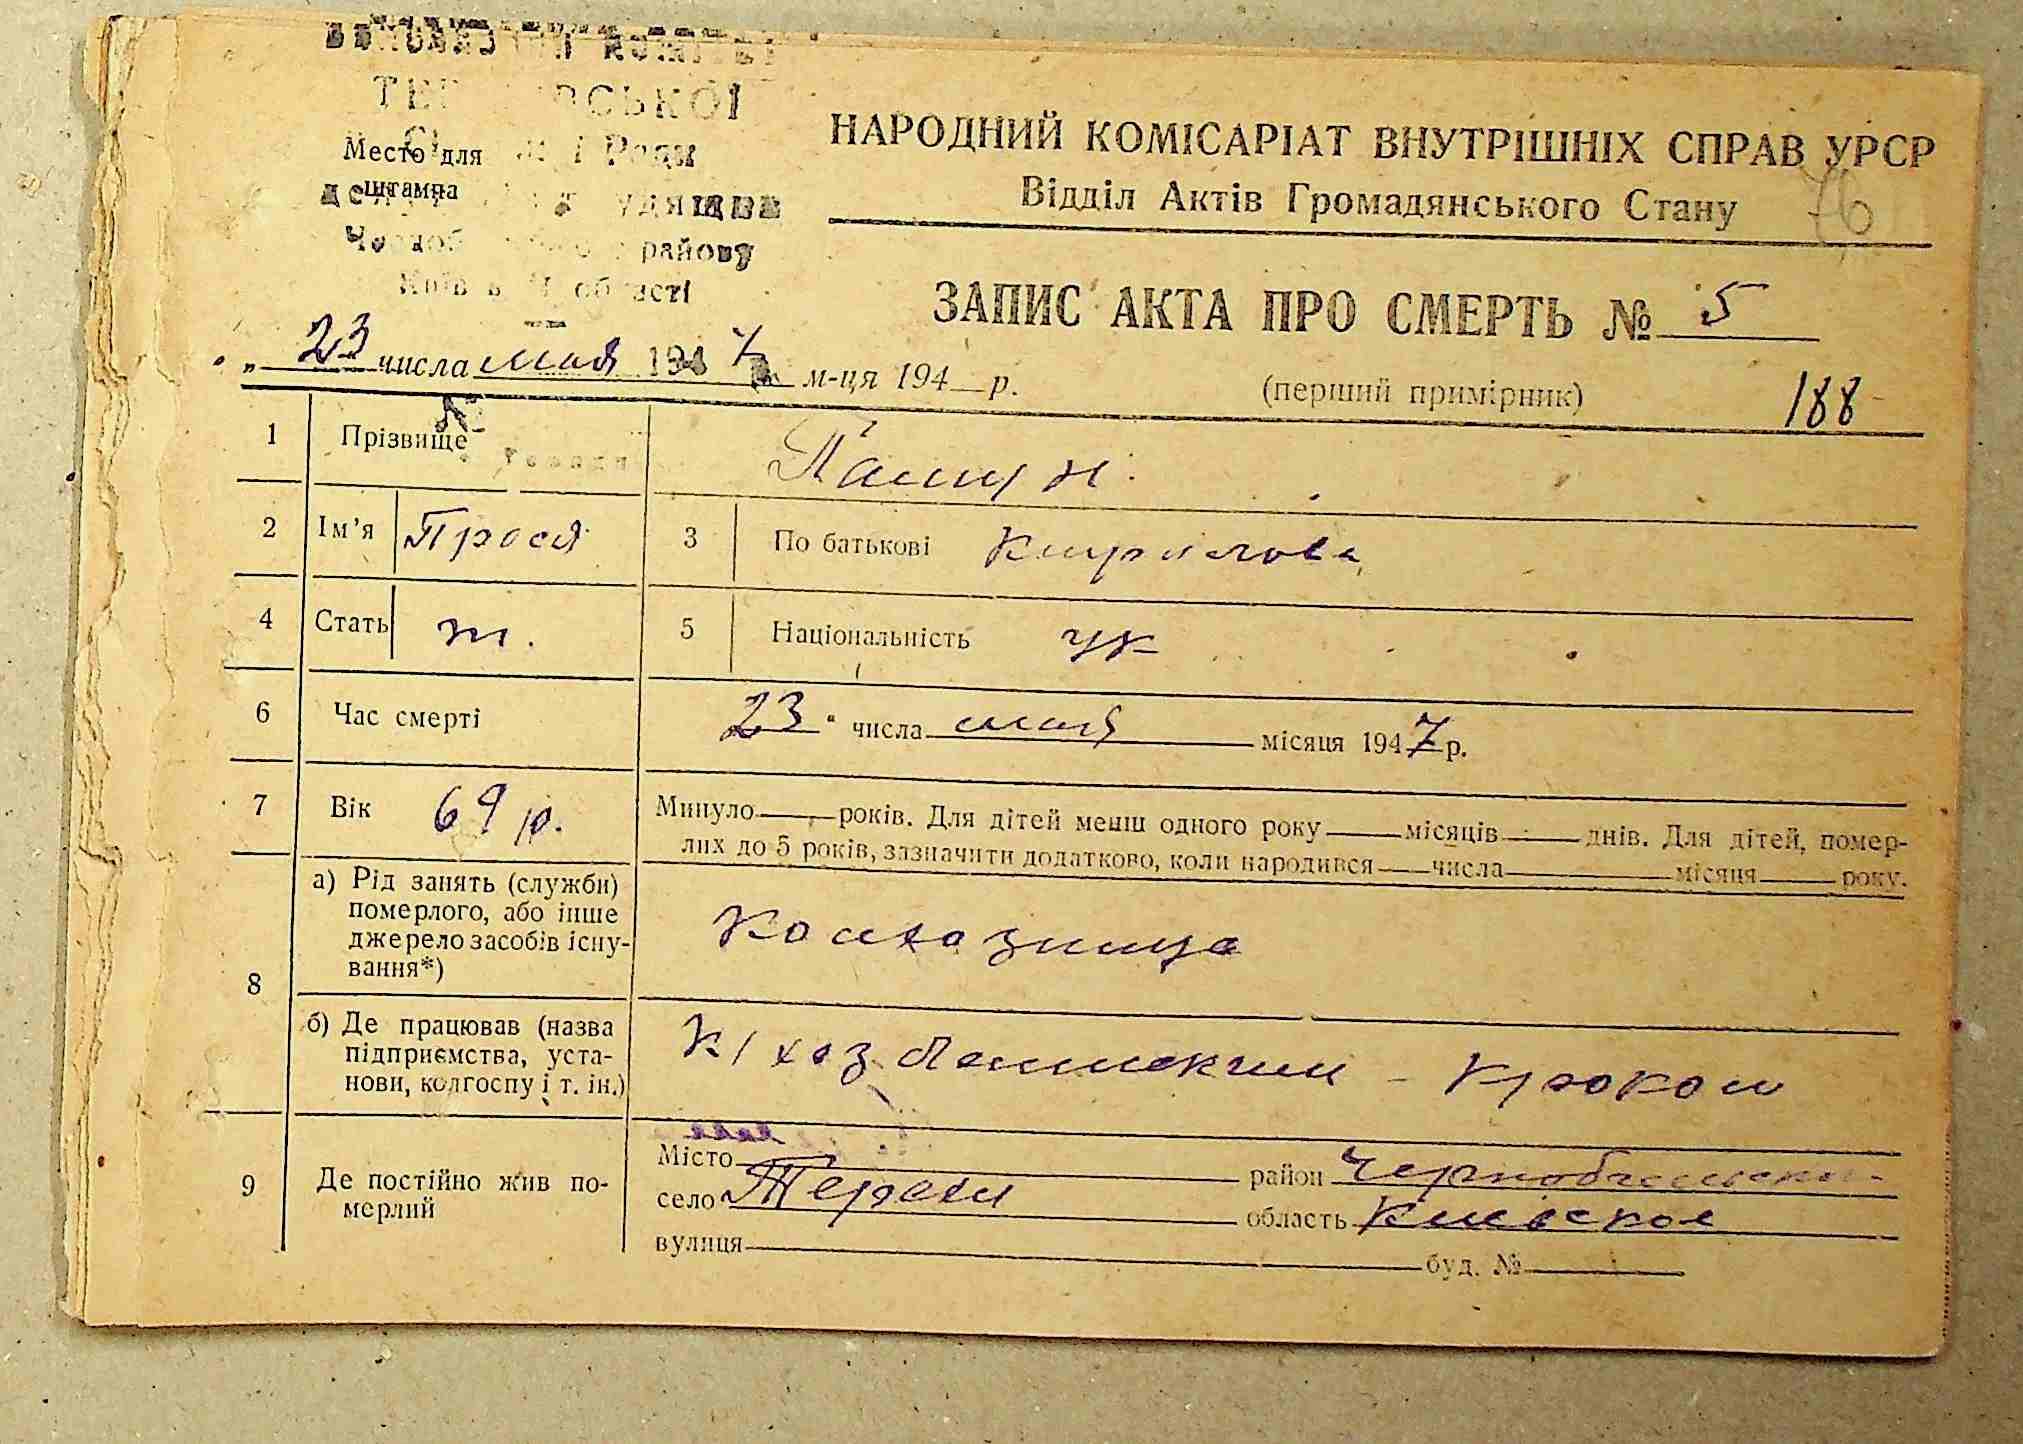 районну
області
Место для
штампа
НАРОДНИЙ КОМІСАРІАТ ВНУТРІШНІХ СПРАВ УРСР
Відділ Актів Громадянського Стану
76
ЗАПИС АКТА ПРО СМЕРТЬ № 5
„ 23 числа мая 1947 м-ця 194 р.
(перший примірник)
188
1 Прізвище
2 Ім'я Прося 3 По батькові Кирилова
4 Стать ж. 5 Національність ук
6 Час смерті 23 " числа мая місяця 1947 р.
7 Вік 69 р. Минуло років. Для дітей менш одного року місяців днів. Для дітей, помер-
лих до 5 років, зазначити додатково, коли народився числа місяця року.
8 а) Рід занять (служби)
померлого, або інше
джерело засобів існу-
вання*)
Колхозница
б) Де працював (назва
підприємства, уста-
нови, колгоспу і т. ін.)
К/хоз Ленинским - Кроком
9 Де постійно жив по-
мерлий
Місто район
село Терехи область Киевская
вулиця буд. №